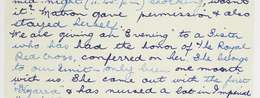 med night, (11.45 pm) shocking, wasn't
it? Matron gave permission & also
stayed herself.
We are giving an "Evening" to a Sister
who has had the honor of The Royal
Red Cross, conferred on her. She belongs
to our Unit only her one mostly
with us. She came out with the first
"Kyarra" & has nursed a lot in Imperial